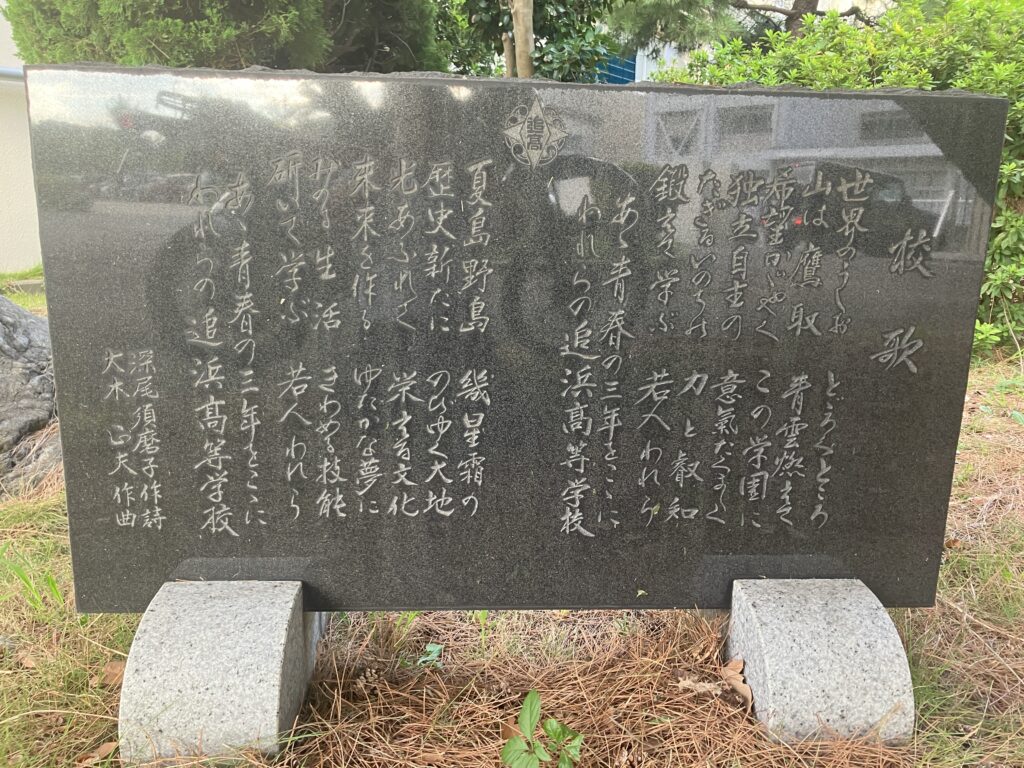 校歌
世界のうしお とどろくところ
山は鷹取 青雲燃えて
希望かゞやく この学園に
独立自主の 意氣たくましく
たぎるいのちの 力と叡知
鍛えて学ぶ 若人われら
あゝ青春の三年をここに
われらの追浜高等学校
追高
夏島野島 幾星霜の
歴史新たに のびゆく大地
光あふれて 栄ゆる文化
未来を作る ゆたかな夢に
みのる生活 きわめる技能
研いで学ぶ 若人われら
あゝ青春の三年をここに
われらの追浜高等学校
深尾須磨子作詩
大木正夫作曲